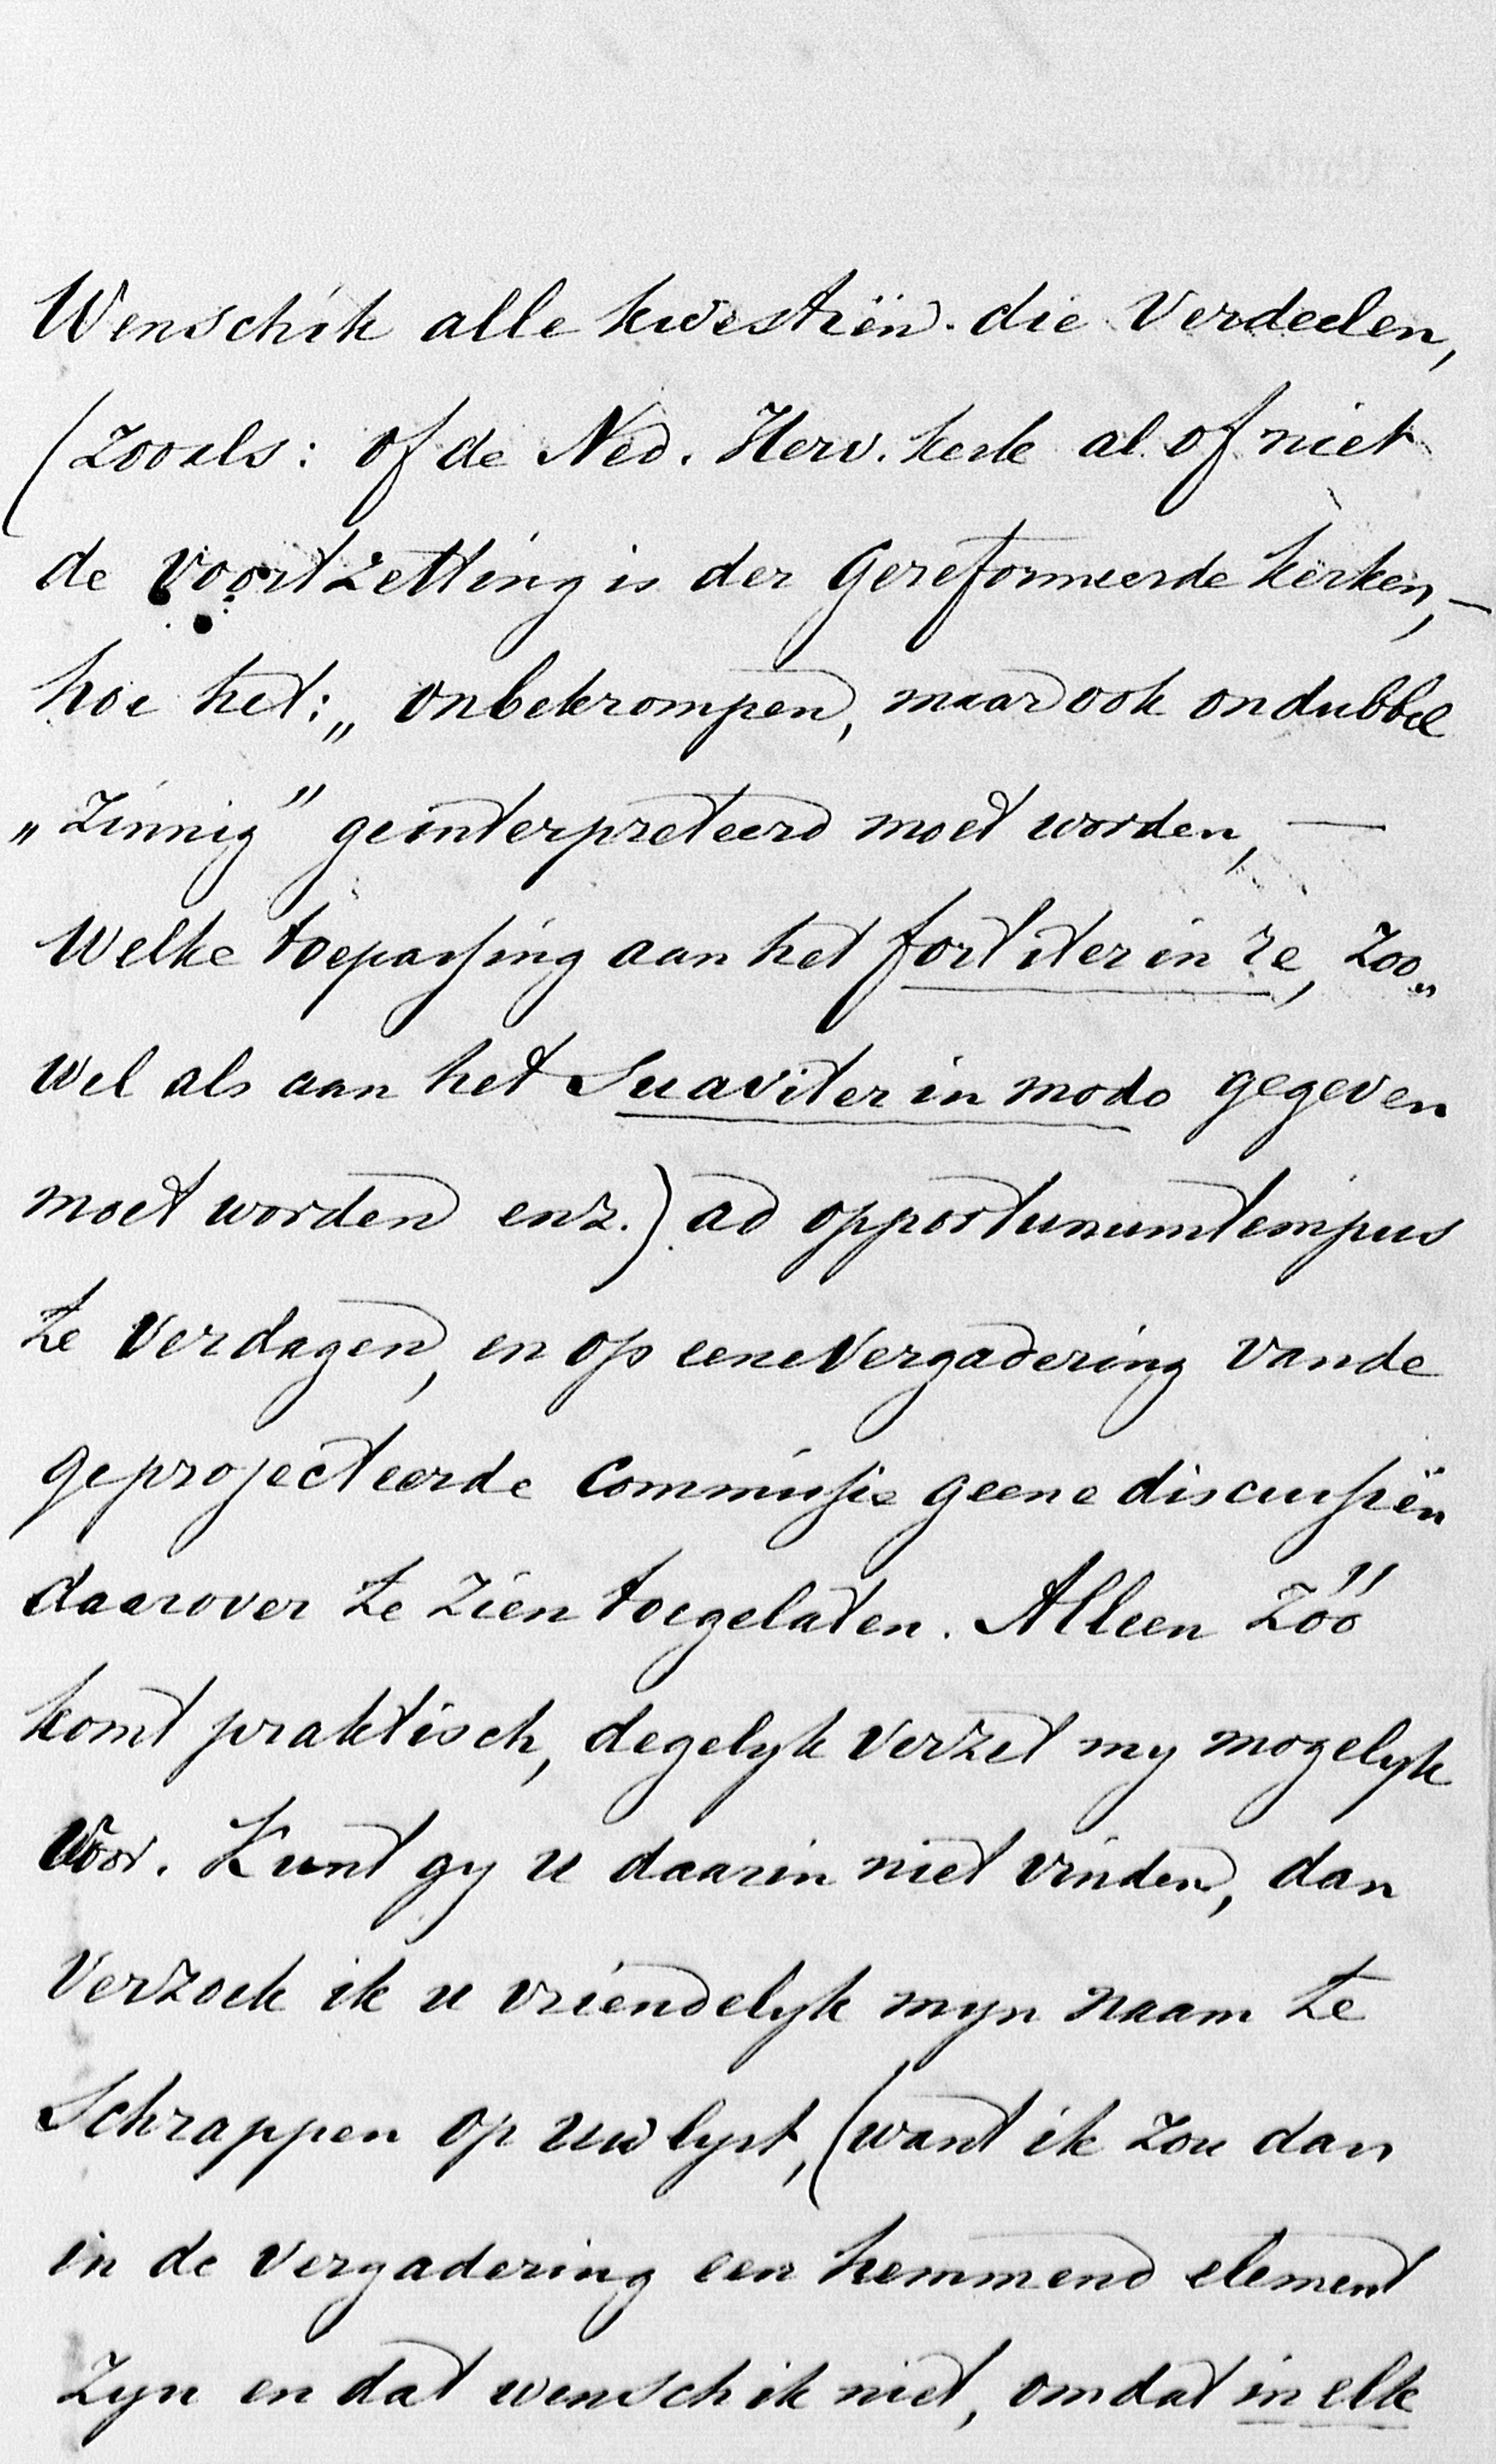 Wensch ik alle kwestiën die verdeelen,
(zooals: of de Ned. Herv. kerk al of niet
de voortzetting is der Gereformeerde kerken, —
hoe het: „onbekrompen, maar ook ondubbel
„zinnig" geinterpreteerd moet worden, —
welke toepassing aan het fortiter in re, zoo„
wel als aan het suaviter in modo gegeven
moet worden enz.) ad opportunum tempus
te verdagen, en op eene vergadering van de
geprojecteerde commissie geene discussiën
daarover te zien toegelaten. Alleen zóó
komt praktisch, degelyk verzet my mogelyk
voor. Kunt gy u daarin niet vinden, dan
verzoek ik u vriendelyk myn naam te
schrappen op uw lyst, (want ik zou dan
in de vergadering een hemmend element
zyn en dat wensch ik niet, omdat in elk